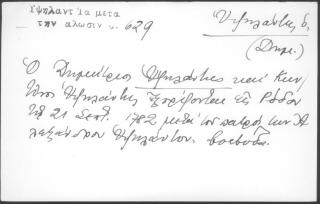 Υψηλαντ ία μετα
την αλωσιν σ. 629
Υψηλάντης δ.
(Δημ.)
Ο Δημήτριος Υψηλάντης και Κων
Υψηλάντης εξορίζονται εις Ρόδον
τη 21 Σεπτ. 1782 μετά του πατρός των Α
λεξάνδρου Υψηλάντου. βοεβόδα.